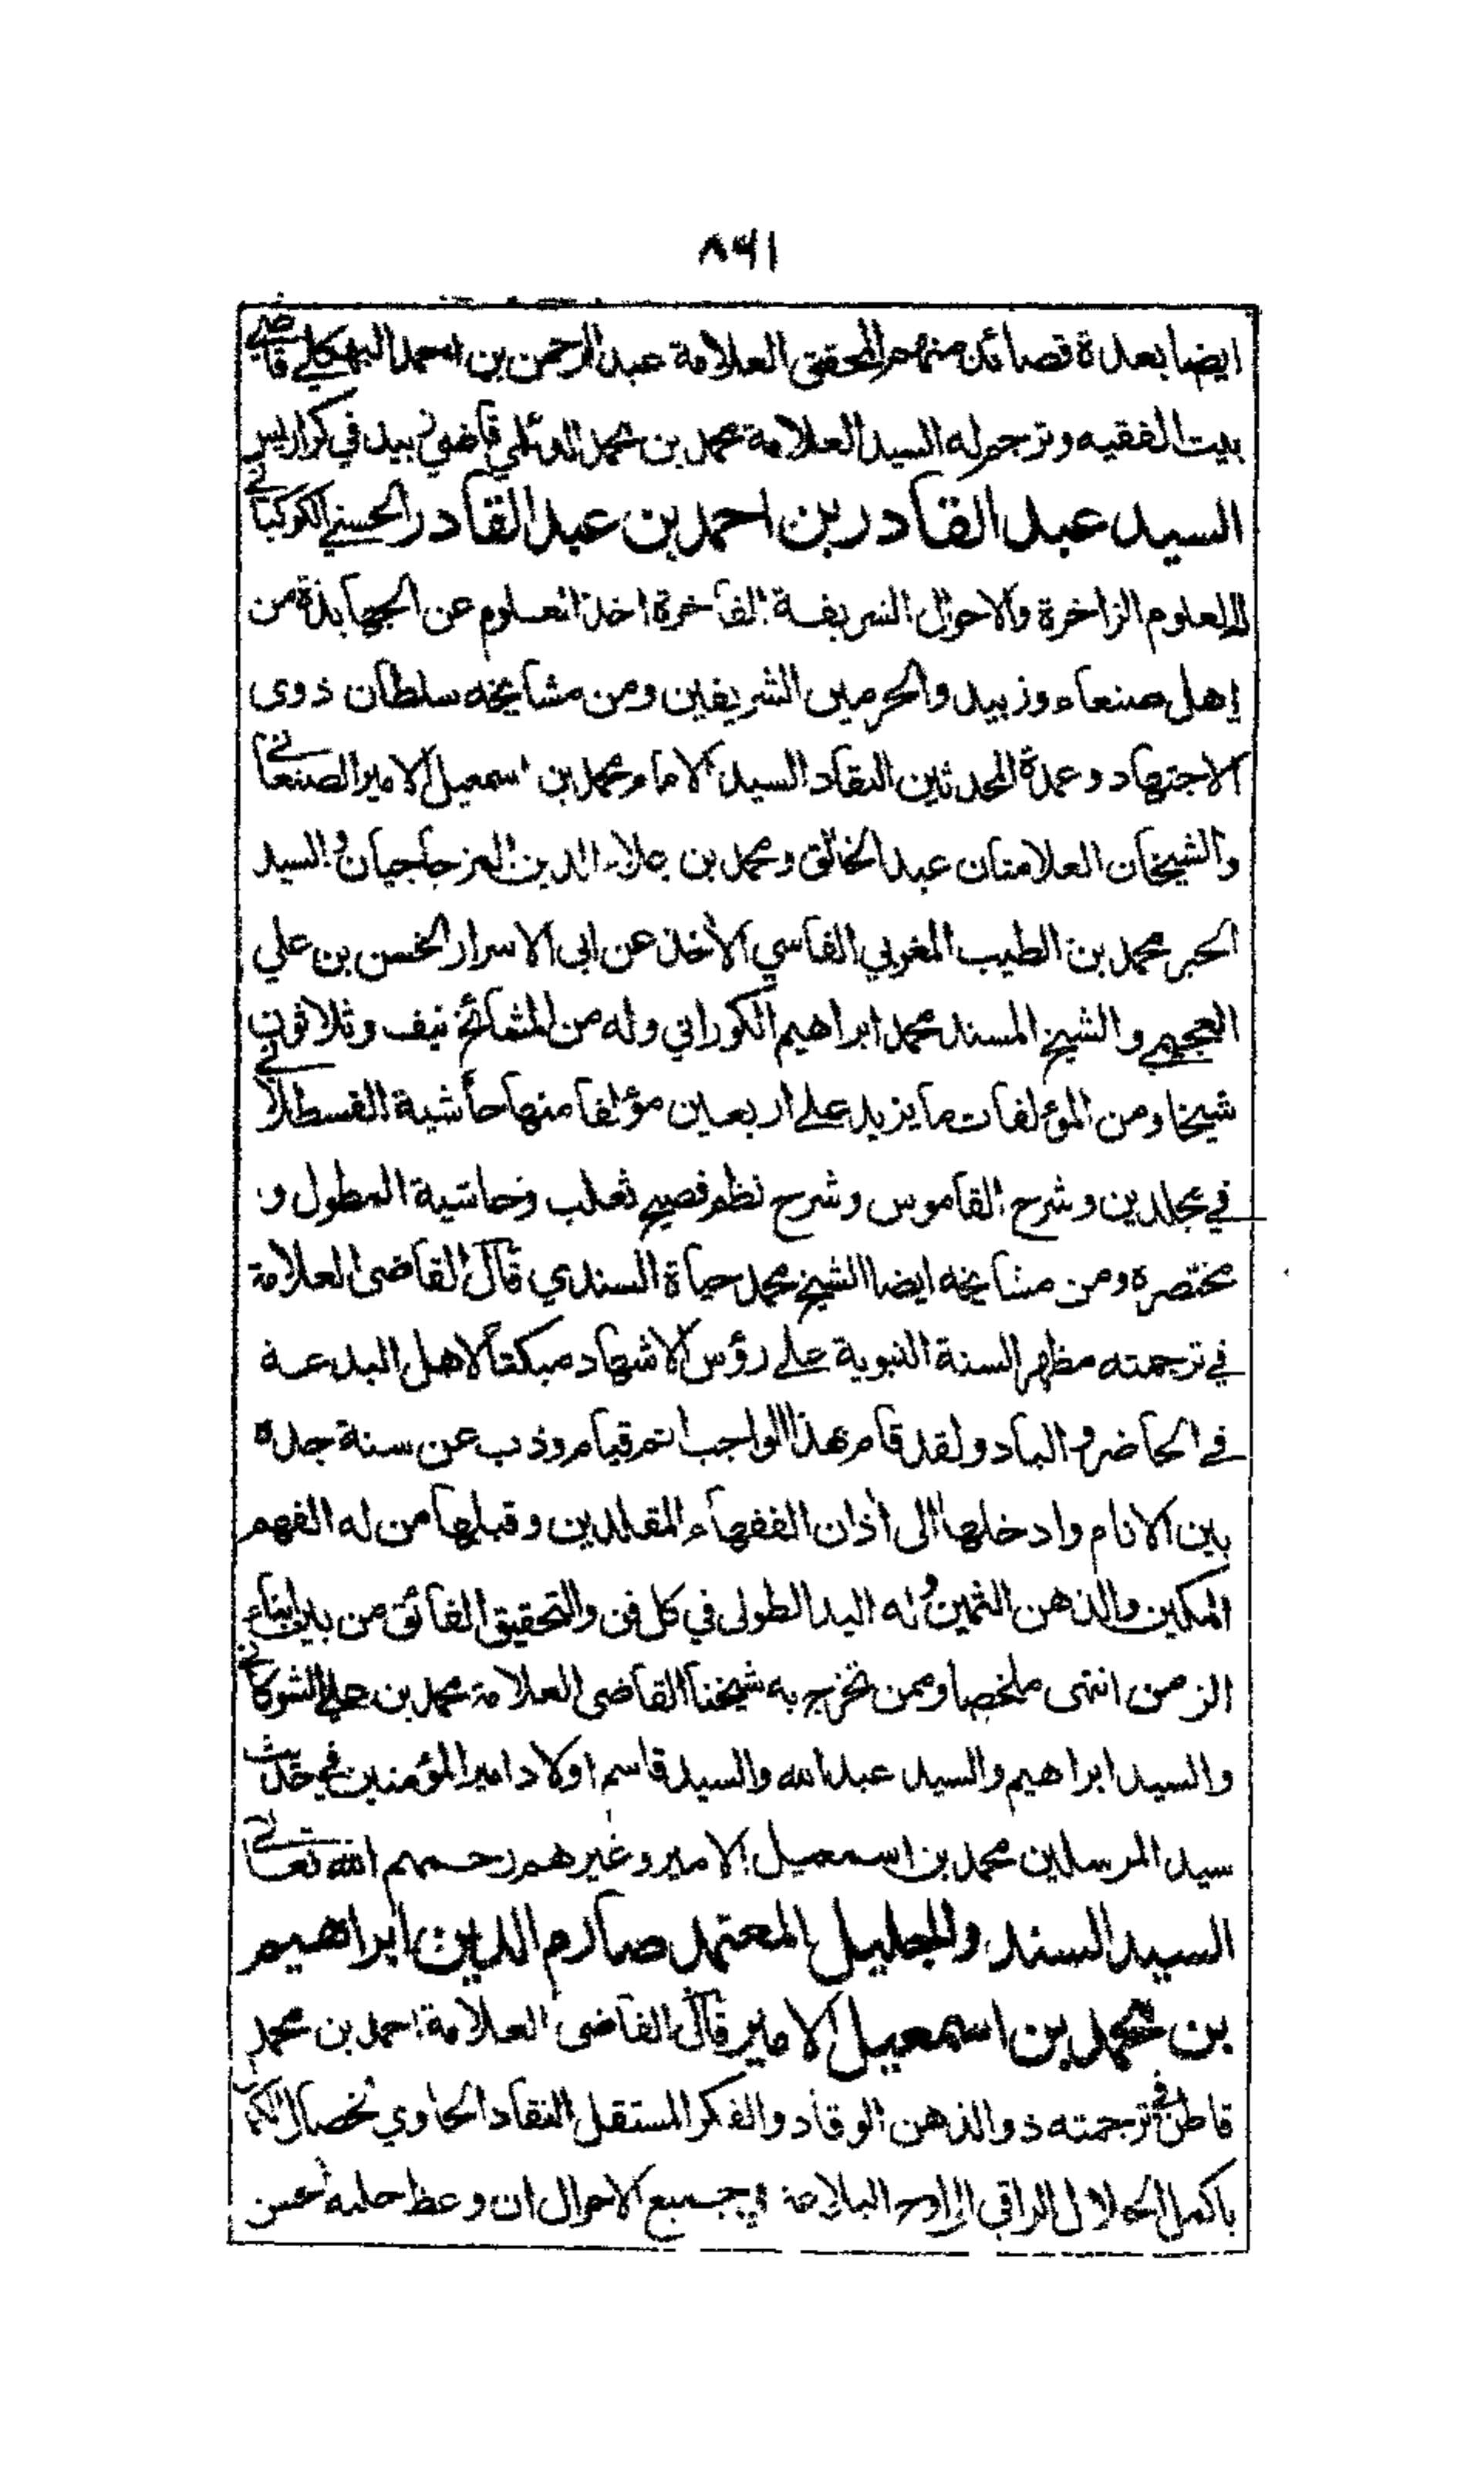 ٨٦١
ايضا بعدة قصائد منهم المحقق العلامة عبد الرحمن بن احمد البهكلي قاضي
بيت الفقيه وترجم له السيد العلامة محمد بن محمد قاضي زبيد في كراريس
السيد عبد القادر بن احمد بن عبد القادر الحسني الكوكباني
العلوم الزاخرة والاحوال الشريفة الفاخرة اخذ العلوم عن الجهابذة من
اهل صنعاء وزبيد والحرمين الشريفين ومن مشايخه سلطان ذوى
الاجتهاد وعمدة المحدثين النقاد السيد الامام محمد بن اسمعيل الامير الصنعاني
والشيخان العلامتان عبد الخالق ومحمد بن علاء الدين المزجاجيان والسيد
الحبر محمد بن الطيب المغربي الفاسي الأخذ عن ابى الاسرار الحسن بن علي
العجيمي والشيخ المسند محمد ابراهيم الكوراني وله من المشائخ نيف وثلاثون
شيخا ومن المؤلفات ما يزيد على اربعين مؤلفا منها حاشية القسطلاني
في مجلدين وشرح القاموس وشرح نظم فصيح ثعلب وحاشية المطول و
مختصره ومن مشايخه ايضا الشيخ محمد حياة السندي قال القاضى العلامة
في ترجمته مظهر السنة النبوية على رؤس الاشهاد مبكتا لاهل البدعة
في الحاضر والباد ولقد قام هذا الواجب اتم قيام وذب عن سنة جده
بين الانام وادخلها الى أذان الفقهاء المقلدين وقبلها من له الفهم
المكين والذهن الثمين وله اليد الطولى في كل فن والتحقيق الفائق من بين ابناء
الزمن انتهى ملخصا وممن تخرج به شيخنا القاضى العلامة محمد بن علي الشوكاني
والسيد ابراهيم والسيد عبد الله والسيد قاسم اولاد امير المؤمنين في حديث
سيد المرسلين محمد بن اسمعيل الامير وغيرهم رحمهم الله تعالى
السيد السند والجليل المعتمد صارم الدين ابراهيم
بن محمد بن اسمعيل الامير قال القاضى العلامة احمد بن محمد
قاطن في ترجمته ذو الذهن الوقاد والفكر المستقل النقاد الحاوي لخصال الكمال
باكمل الخلال الراقي البلاغة في جميع الاحوال ان وعظ